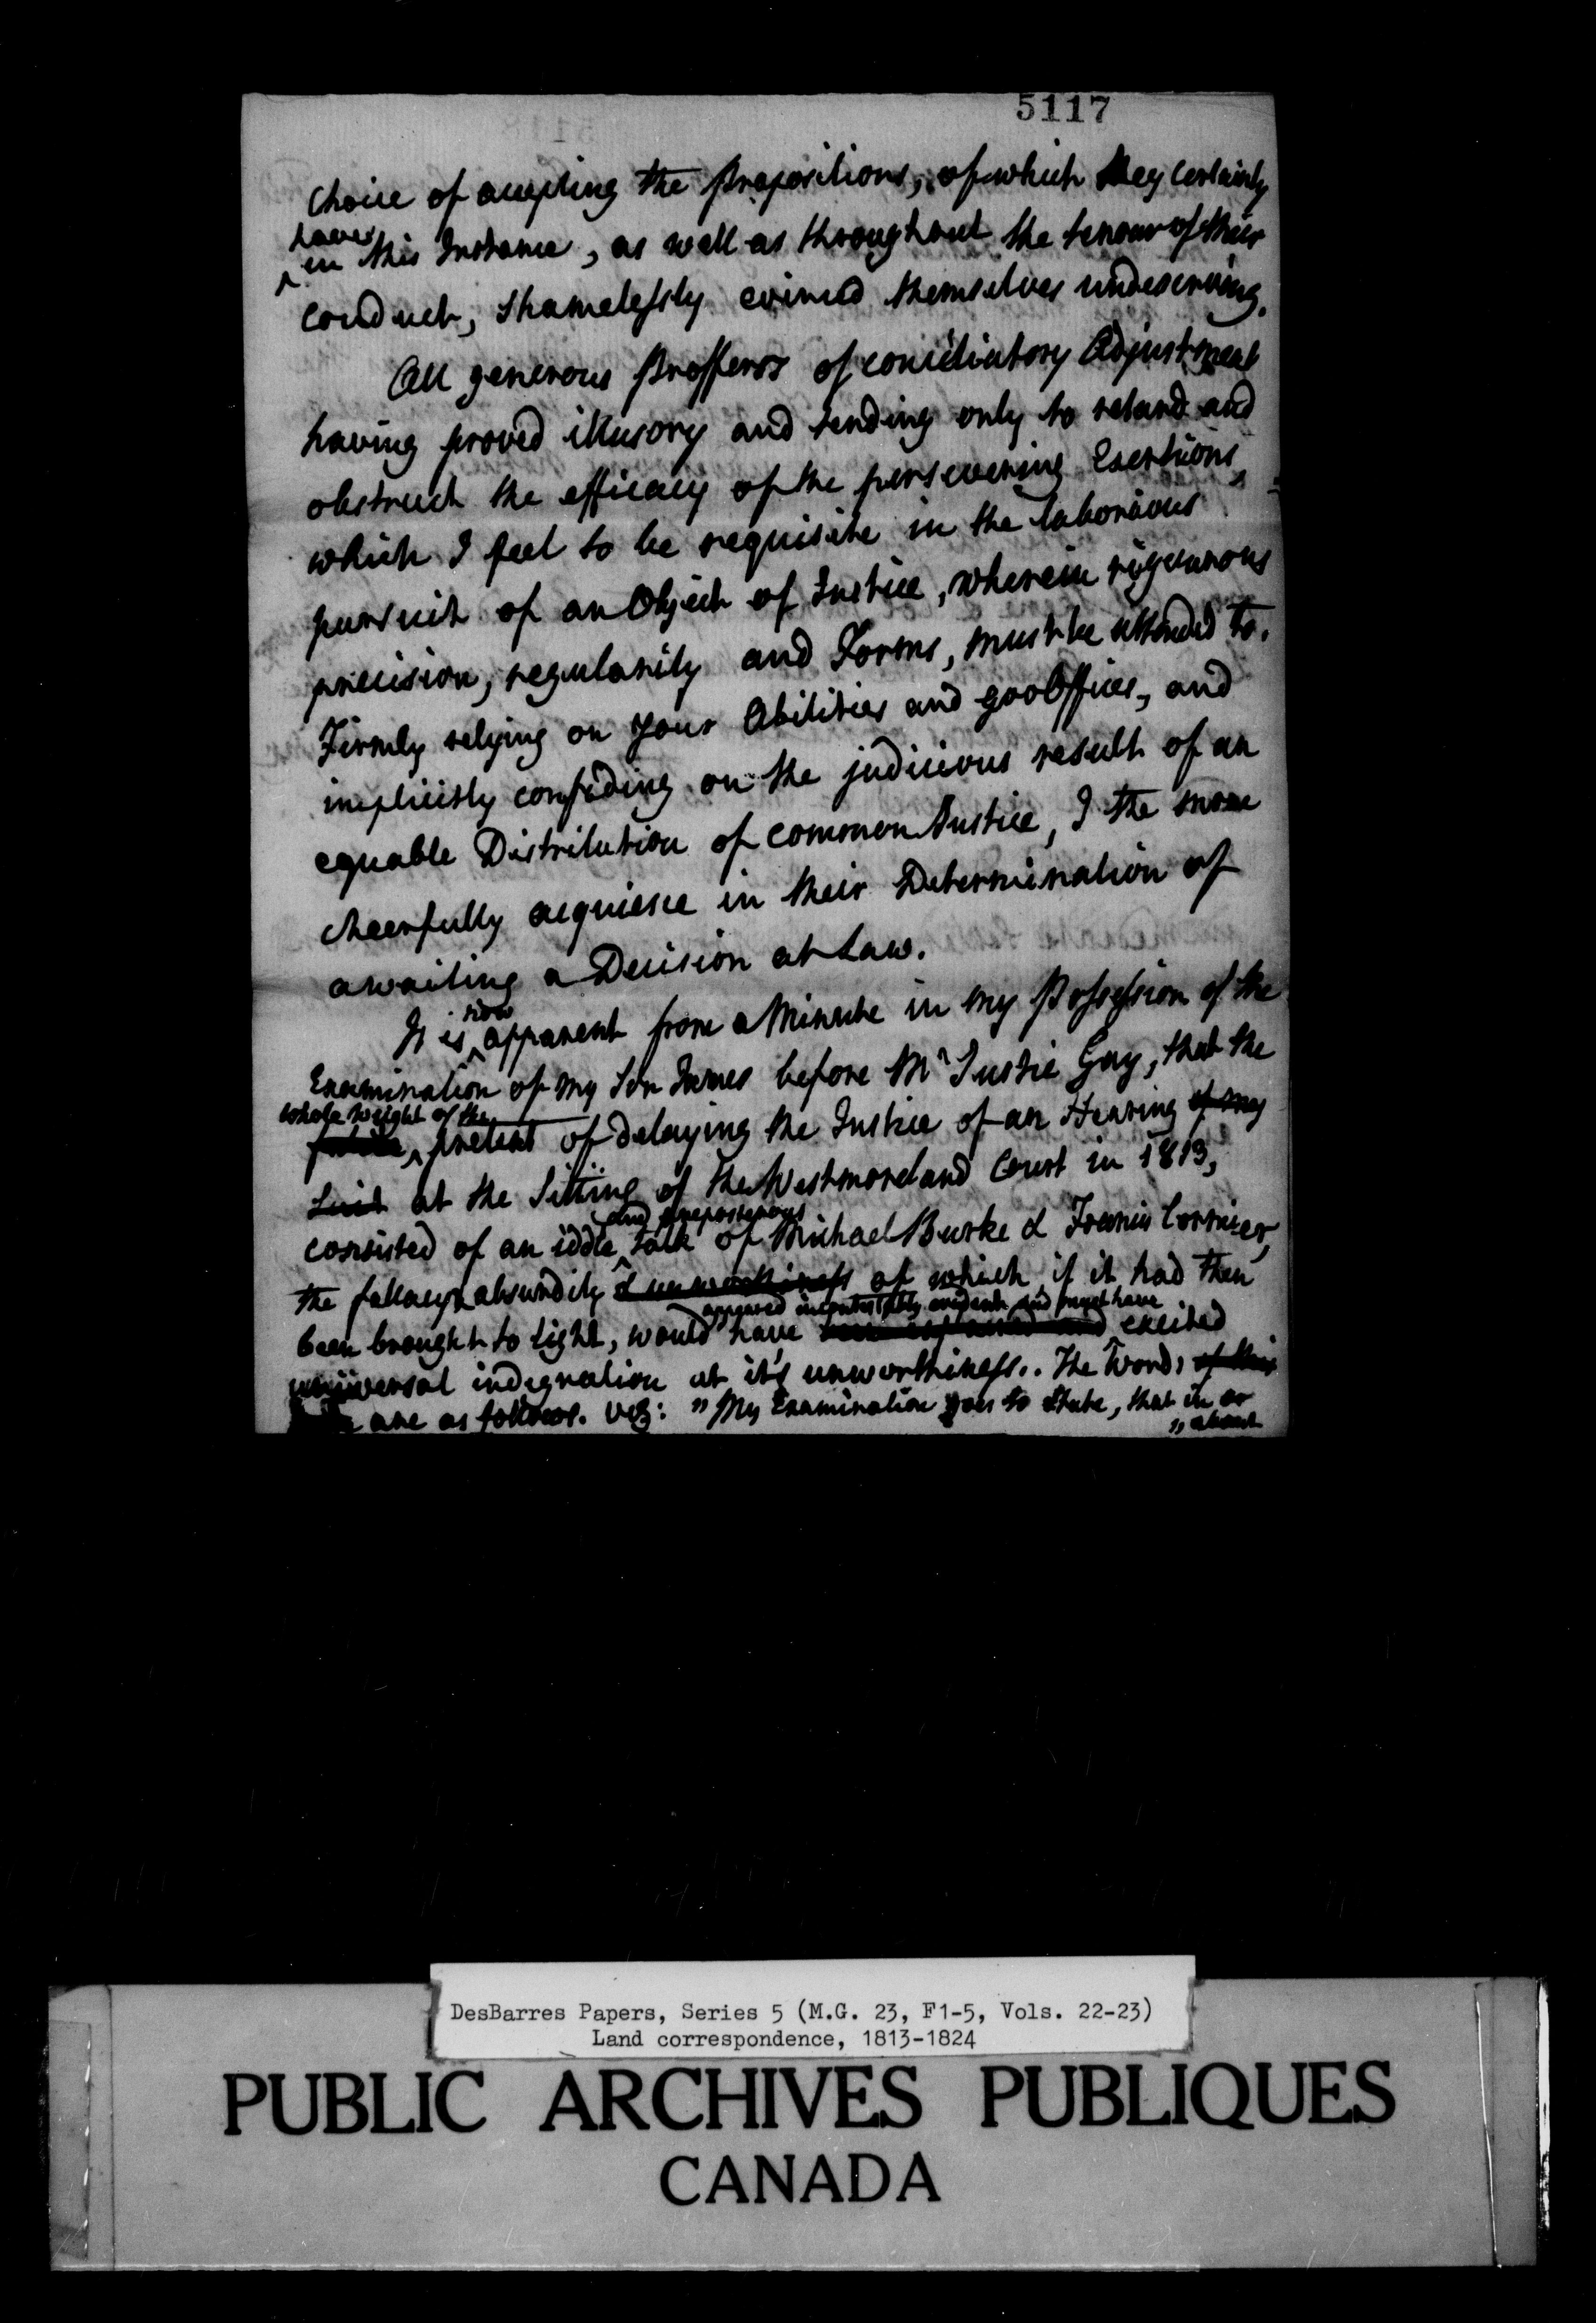 5117
Choice of accepting the Propositions, of which they certainly
have
in this Instance, as well as throughout the tenour of their
conduct, shamelessly evinced themselves undeserving.
All generous Proffers of conciliatory Adjustment
having proved illusory and tending only to retard and
obstruct the efficacy of the persevering Exertions,
which I feel to be requisite in the laborious
pursuit of an Object of Justice, wherein rigourous
precision, regularity and Forms, must be attended to.
Firmly relying on your Abilities and goodOffices, and
implicitly confiding on the judicious result of an
equable Distribution of common Justice, I the more
cheerfully acquiesce in their Determination of
awaiting a Decision at Law.
now
It is apparent from a Minute in my Possession of the
Examination of my Son James before Mr Justice Gay, that the
whole weight of the
pretext of delaying the Justice of an Hearing of my
Suit at the Sitting of the Westmoreland Court in 1813,
and preposterous
consisted of an iddle talk of Michael Burke & Francis Cormier,
the fallacy & absurdity & unworthiness of which if it had then
appeared incontestably evident and must have
been brought to light, would have excited
universal indignation at it's unworthiness.. The Words of this
are as follows. viz: "My Examination goes to state, that in or
" about
DesBarres Papers, Series 5 (M.G. 23, F1-5, Vols. 22-23)
Land correspondence, 1813-1824
PUBLIC ARCHIVES PUBLIQUES
CANADA